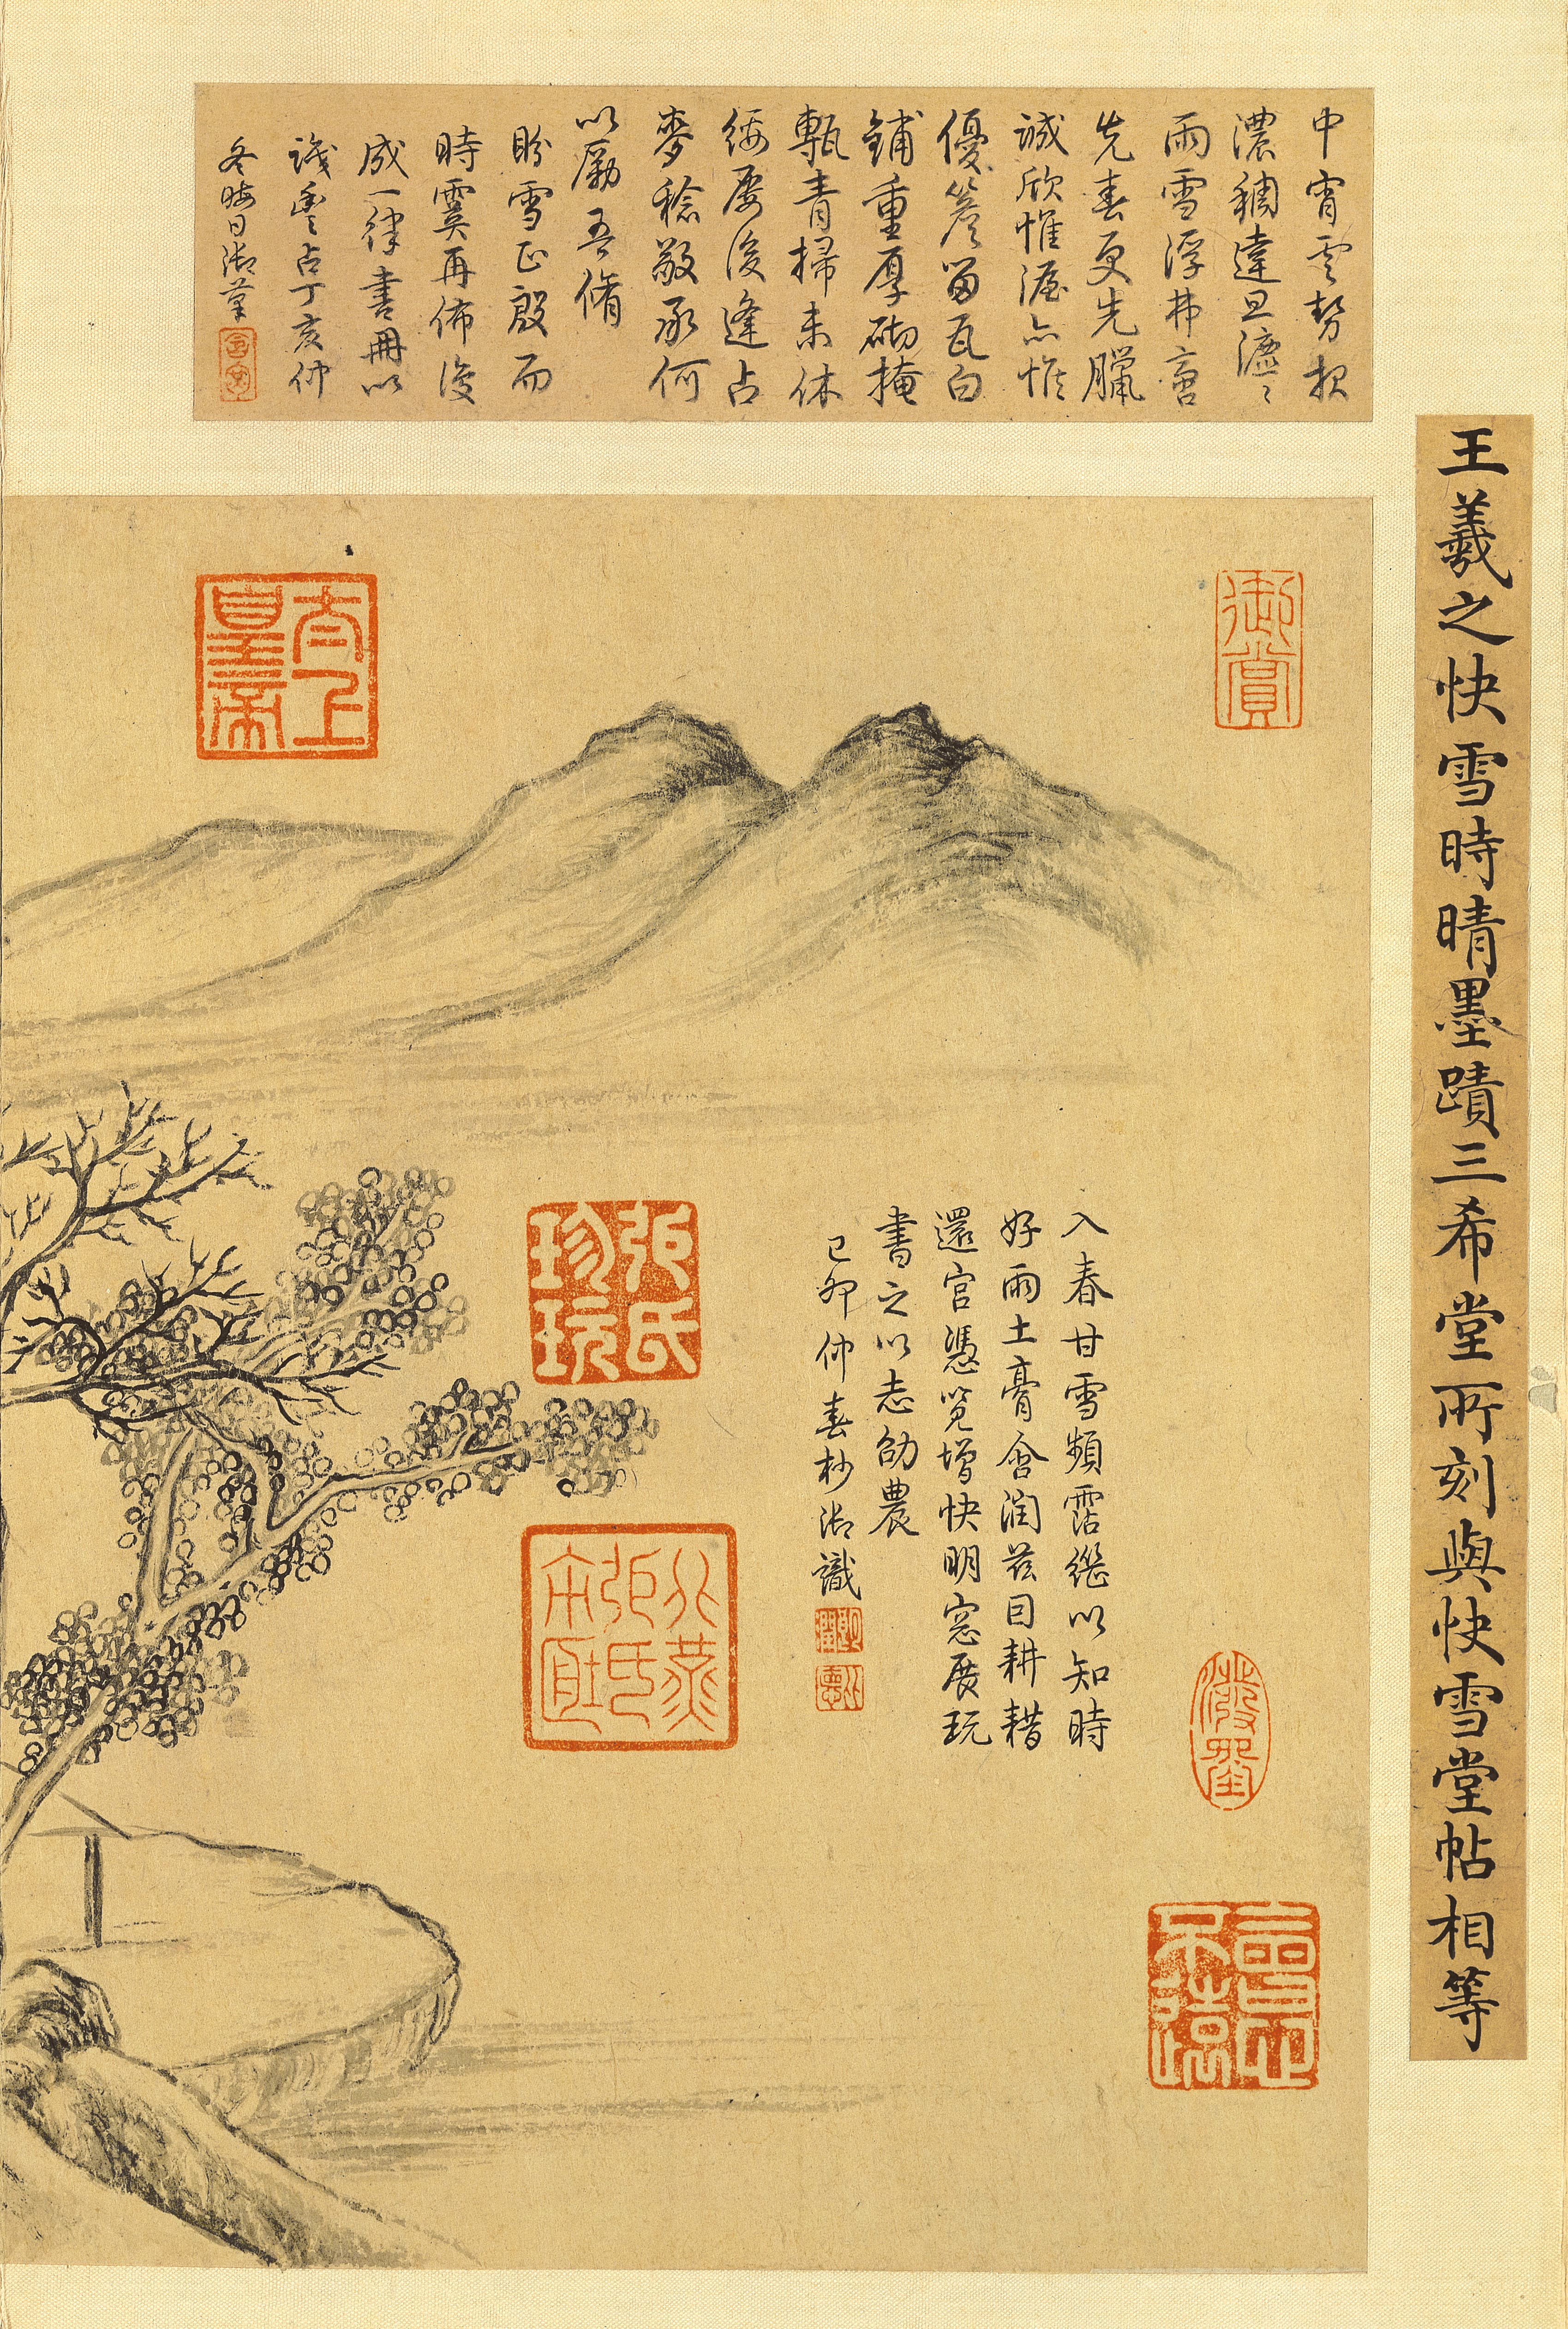 王羲之快雪時晴墨蹟三希堂所刻與快雪堂帖相等
中宵雲勢報
濃稠達旦瀌〻
雨雪浮弗啻
先春更先臘
誠欣惟渥亦惟
優簷留瓦白
鋪重厚砌掩
甎青掃未休
綏屢後逢占
麥稔敬承何
以勵吾脩
盼雪正殷而
時霙再佈復
成一律書冊以
識豐占丁亥仲
冬晦日御筆
御賞
太上
皇帝
入春甘雪頻霑繼以知時
好雨土膏含潤茲目耕耤
還宮憑覽增快明窓展玩
書之以志劭農
己卯仲春杪御識
張氏
珍玩
北燕
張氏